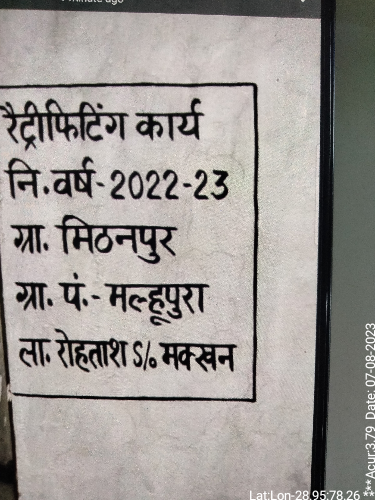 minute ago
रैट्रीफिटिंग कार्य
नि. वर्ष- 2022-23
ग्रा. मिठनपुर
ग्रा. पं.- मल्हूपुरा
ला. रोहताश S/o मक्खन
Lat:Lon-28.95:78.26
***Acur:3.79 Date: 07-08-2023